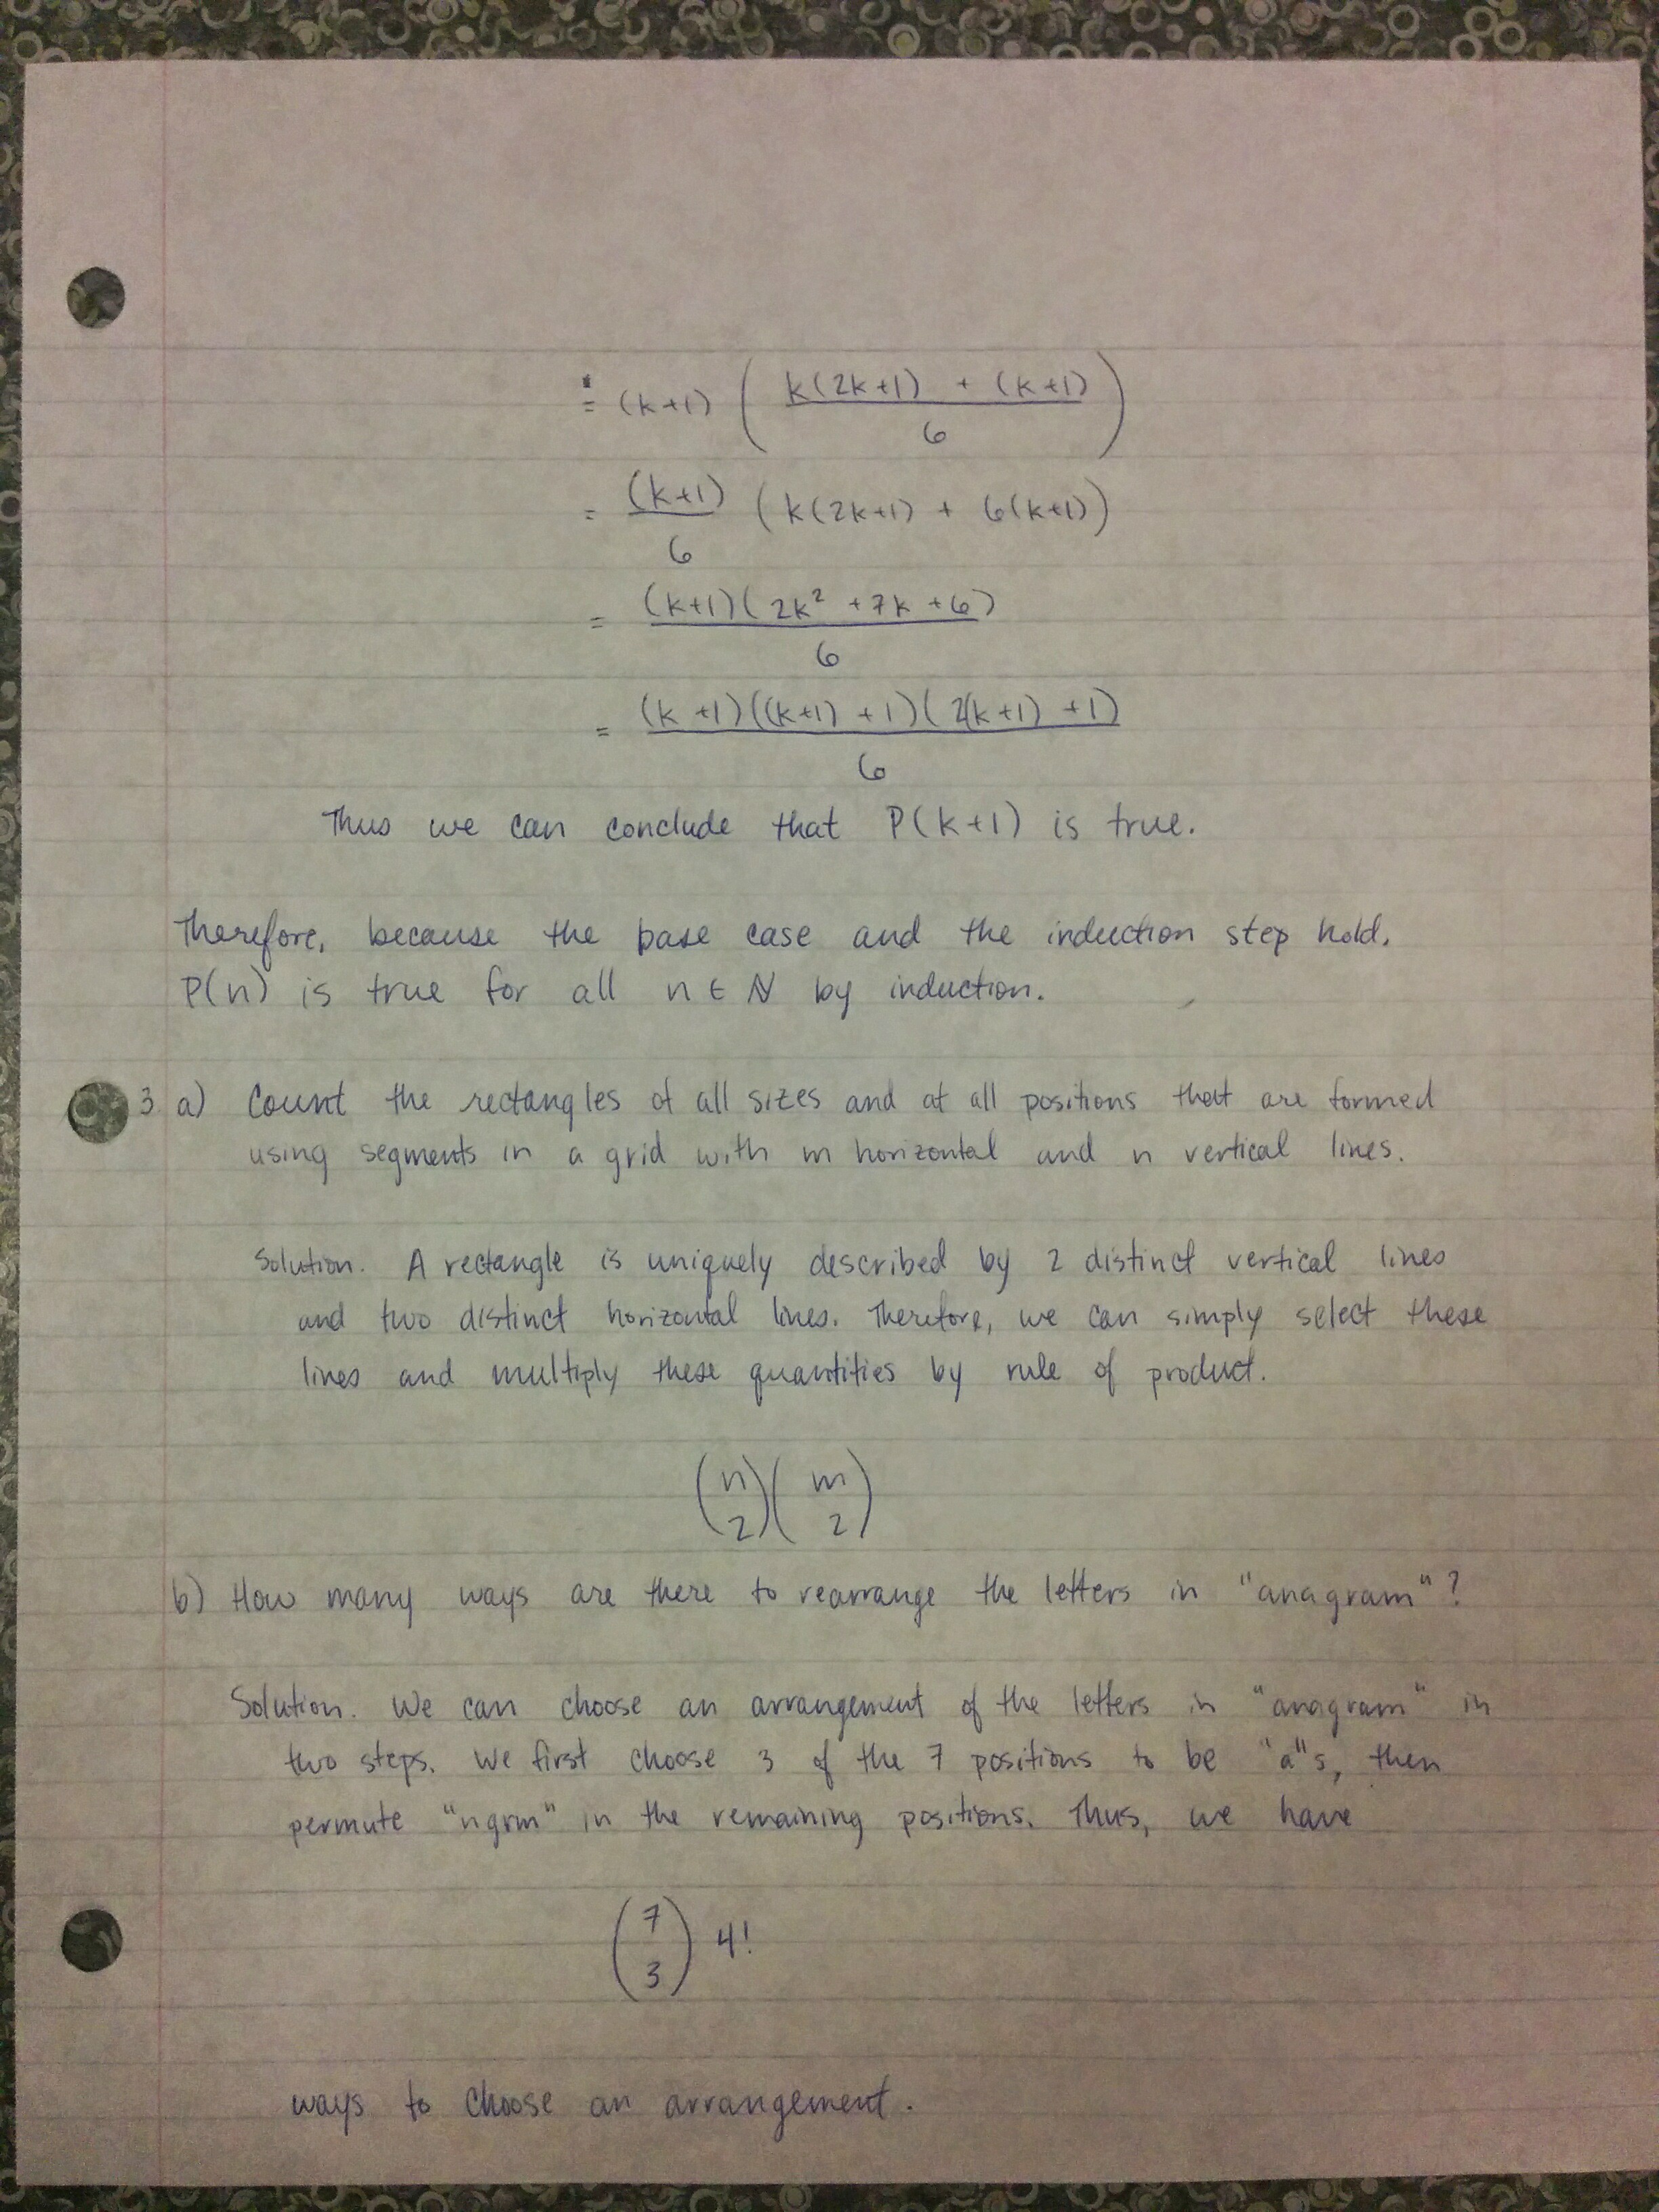 = (k+1) ( k(2k+1) + (k+1) / 6 )
= (k+1) / 6 ( k(2k+1) + 6(k+1) )
= (k+1)(2k² + 7k + 6) / 6
= (k+1)((k+1) + 1)(2(k+1) + 1) / 6
Thus we can conclude that P(k+1) is true.
Therefore, because the base case and the induction step hold,
P(n) is true for all n ∈ ℕ by induction.
3 a) Count the rectangles of all sizes and at all positions that are formed
using segments in a grid with m horizontal and n vertical lines.
Solution. A rectangle is uniquely described by 2 distinct vertical lines
and two distinct horizontal lines. Therefore, we can simply select these
lines and multiply these quantities by rule of product.
(n 2)(m 2)
b) How many ways are there to rearrange the letters in "anagram"?
Solution. We can choose an arrangement of the letters in "anagram" in
two steps. We first choose 3 of the 7 positions to be "a"s, then
permute "ngrm" in the remaining positions. Thus, we have
(7 3) 4!
ways to choose an arrangement.